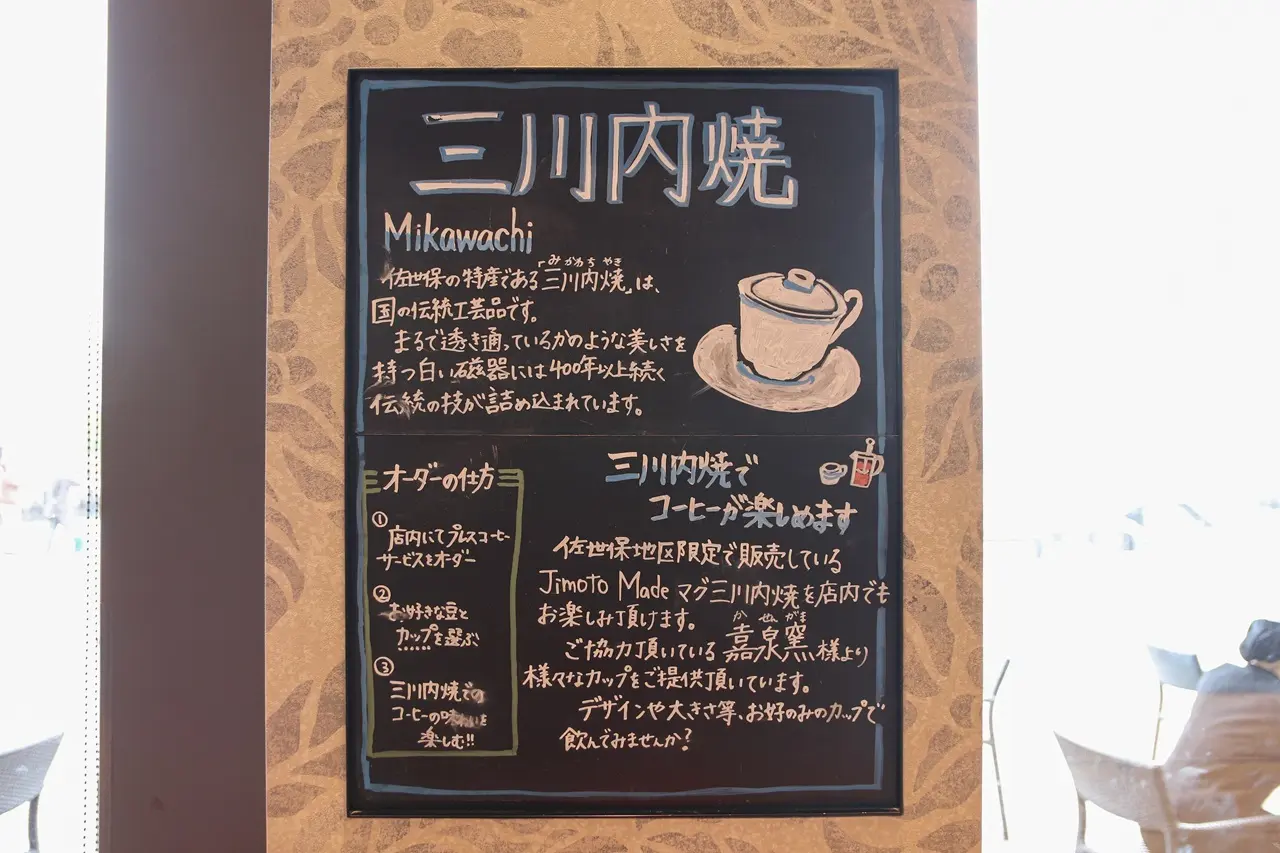 三川内焼
Mikawachi
佐世保の特産である「三川内焼」は、
みかわち やき
国の伝統工芸品です。
まるで透き通っているかのような美しさを
持つ白い磁器には400年以上続く
伝統の技が詰め込まれています。
オーダーの仕方
①
店内にてプレスコーヒー
サービスをオーダー
②
お好きな豆と
カップを選ぶ
③
三川内焼での
コーヒーの味わいを
楽しむ!!
三川内焼で
コーヒーが楽しめます
佐世保地区限定で販売している
Jimoto Made マグ三川内焼を店内でも
お楽しみ頂けます。
か せん がま
ご協力頂いている 嘉泉窯様より
様々なカップをご提供頂いています。
デザインや大きさ等、お好のみのカップで
飲んでみませんか?